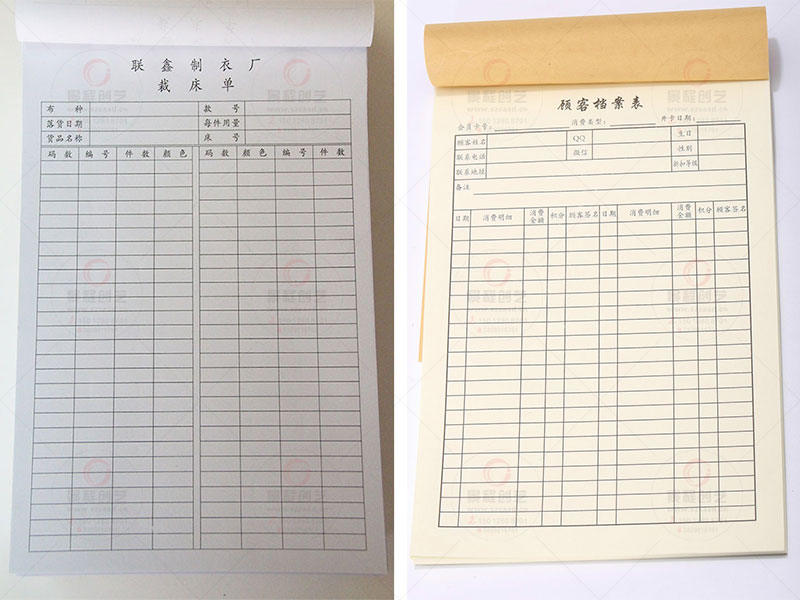 联鑫制衣厂
裁床单
布种 款号
落货日期 每件用量
货品名称 床号
码数 编号 件数 颜色 码数 颜色 编号 件数
顾客档案表
会员卡号: 消费类型: 开卡日期:
顾客姓名 QQ 生日
联系电话 微信 性别
联系地址 折扣等级
备注
日期 消费明细 消费金额 积分 顾客签名 日期 消费明细 消费金额 积分 顾客签名
景程创艺
景程创艺
景程创艺
景程创艺
景程创艺
景程创艺
景程创艺
景程创艺